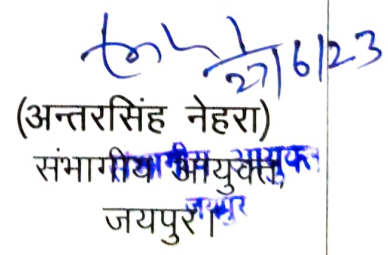 27/6/23
(अन्तरसिंह नेहरा)
संभागीय आयुक्त,
जयपुर।
संभागीय आयुक्त
जयपुर